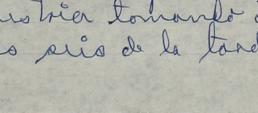 ustria tomando
s seis de la tard